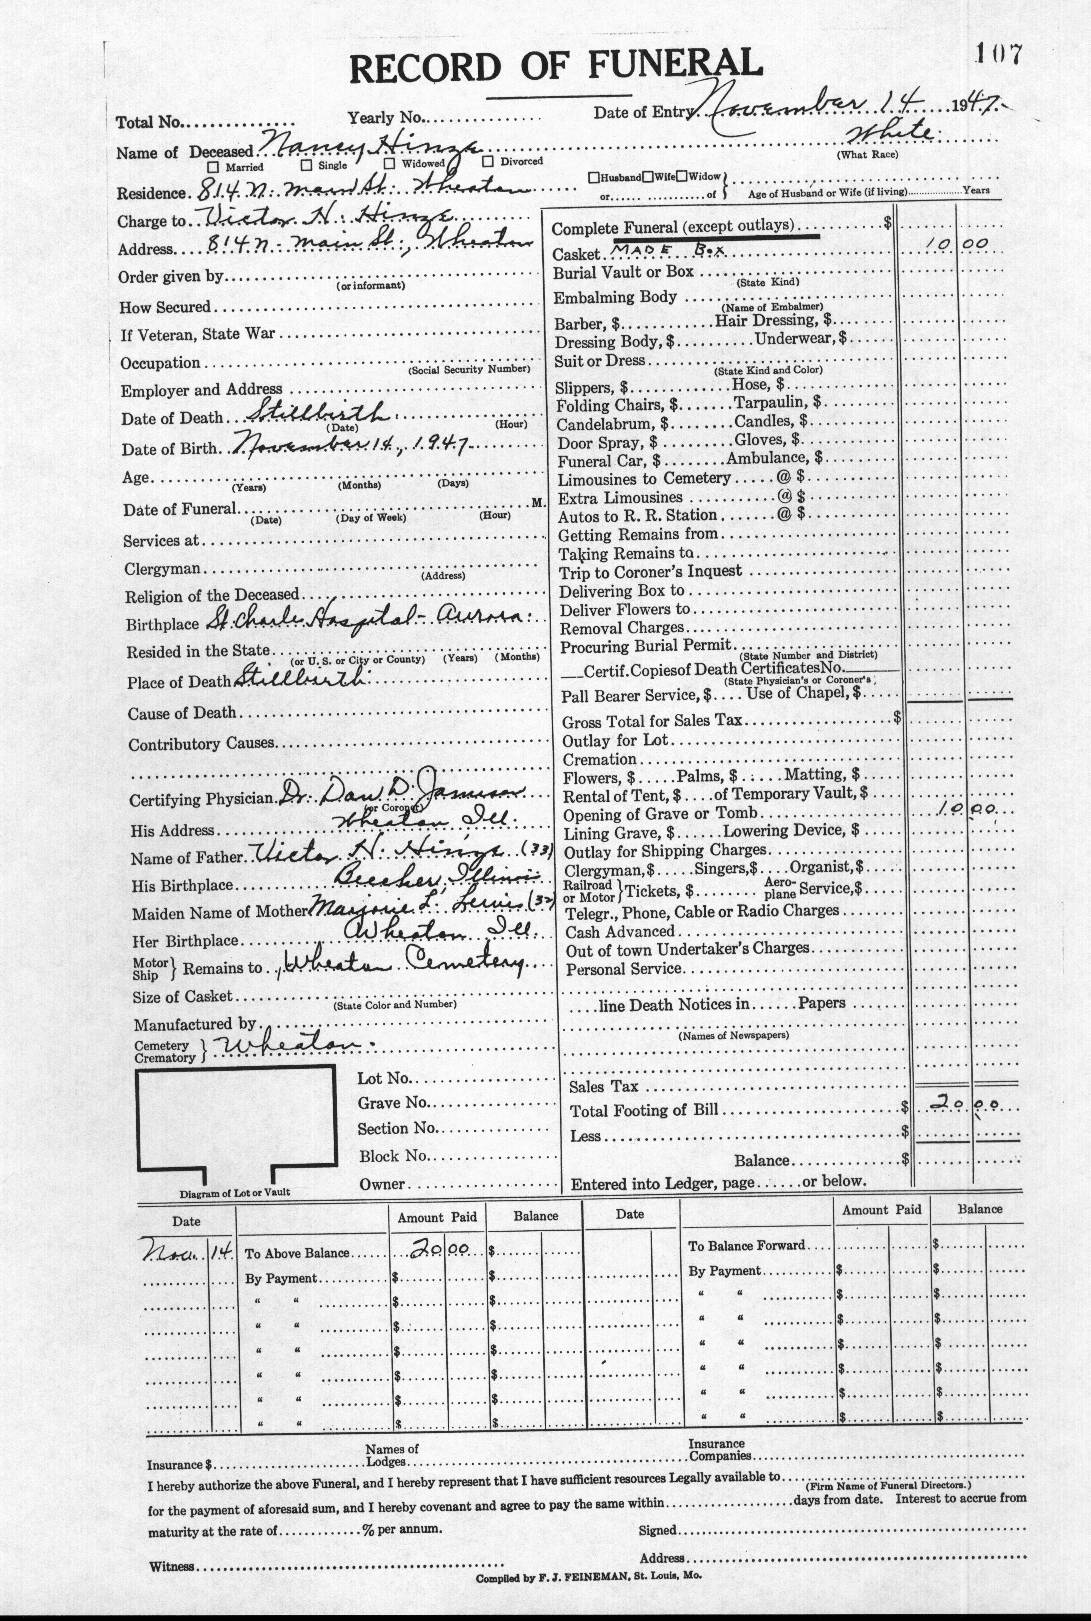 107
RECORD OF FUNERAL
Total No. Yearly No. Date of Entry November 14 1947
Name of Deceased Nancy Hinze White
☐ Married ☐ Single ☐ Widowed ☐ Divorced (What Race)
Residence. 814 N. Main St. Wheaton ☐Husband☐Wife☐Widow } or...... of Age of Husband or Wife (if living) Years
Charge to Victor H. Hinze
Address 814 N. Main St., Wheaton
Order given by
(or informant)
How Secured
If Veteran, State War
Occupation
(Social Security Number)
Employer and Address
Date of Death Stillbirth
(Date) (Hour)
Date of Birth November 14, 1947
Age
(Years) (Months) (Days)
Date of Funeral M.
(Date) (Day of Week) (Hour)
Services at
Clergyman
(Address)
Religion of the Deceased
Birthplace St. Charles Hospital - Aurora
Resided in the State
(or U. S. or City or County) (Years) (Months)
Place of Death Stillbirth
Cause of Death
Contributory Causes
Certifying Physician Dr. Dan D. Jamison
(or Coroner)
His Address Wheaton Ill.
Name of Father Victor H. Hinze (33)
His Birthplace Beecher, Illinois
Maiden Name of Mother Marjorie L. Lewis (32)
Her Birthplace Wheaton Ill.
Motor Ship } Remains to Wheaton Cemetery
Size of Casket
(State Color and Number)
Manufactured by
Cemetery Crematory } Wheaton
Lot No.
Grave No.
Section No.
Block No.
Owner
Diagram of Lot or Vault
Complete Funeral (except outlays) $
Casket MADE Box 10 00
Burial Vault or Box
(State Kind)
Embalming Body
(Name of Embalmer)
Barber, $ Hair Dressing, $
Dressing Body, $ Underwear, $
Suit or Dress
(State Kind and Color)
Slippers, $ Hose, $
Folding Chairs, $ Tarpaulin, $
Candelabrum, $ Candles, $
Door Spray, $ Gloves, $
Funeral Car, $ Ambulance, $
Limousines to Cemetery @ $
Extra Limousines @ $
Autos to R. R. Station @ $
Getting Remains from
Taking Remains to
Trip to Coroner's Inquest
Delivering Box to
Deliver Flowers to
Removal Charges
Procuring Burial Permit
(State Number and District)
Certif.Copiesof Death CertificatesNo.
(State Physician's or Coroner's)
Pall Bearer Service, $ Use of Chapel, $
Gross Total for Sales Tax $
Outlay for Lot
Cremation
Flowers, $ Palms, $ Matting, $
Rental of Tent, $ of Temporary Vault, $
Opening of Grave or Tomb 10 00
Lining Grave, $ Lowering Device, $
Outlay for Shipping Charges
Clergyman,$ Singers,$ Organist,$
Railroad or Motor } Tickets, $ Aero-plane Service,$
Telegr., Phone, Cable or Radio Charges
Cash Advanced
Out of town Undertaker's Charges
Personal Service
line Death Notices in Papers
(Names of Newspapers)
Sales Tax
Total Footing of Bill $ 20 00
Less $
Balance $
Entered into Ledger, page or below.
Date Amount Paid Balance Date Amount Paid Balance
Nov. 14 To Above Balance 20 00 $ To Balance Forward $
By Payment $ $ By Payment $ $
" " $ $ " " $ $
" " $ $ " " $ $
" " $ $ " " $ $
" " $ $ " " $ $
" " $ $ " " $ $
" " $ $ " " $ $
Insurance $ Names of Lodges Insurance Companies
I hereby authorize the above Funeral, and I hereby represent that I have sufficient resources Legally available to
(Firm Name of Funeral Directors.)
for the payment of aforesaid sum, and I hereby covenant and agree to pay the same within days from date. Interest to accrue from
maturity at the rate of % per annum. Signed
Witness Address
Compiled by F. J. FEINEMAN, St. Louis, Mo.